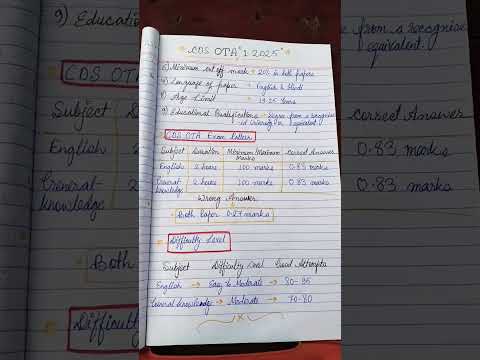 CDS OTA 1 2025
6) Minimum cut off mark → 20% in both papers
7) Language of paper → English & Hindi
8) Age Limit → 19-25 Years
9) Educational Qualification → Degree from a recognised
University or equivalent.
CDS OTA Exam Pattern
Subject Duration Maximum Marks Correct Answer
English 2 hours 100 marks 0.83 marks
General knowledge 2 hours 100 marks 0.83 marks
Wrong Answer
Both Paper 0.27 marks
Difficulty Level
Subject Difficulty Level Good Attempts
English → Easy to Moderate → 80-85
General knowledge → Moderate → 70-80
9) Educatio
CDS OTA
Subject
English
General-
knowledge
Both
Difficulty
from a recognise
equivalent.
correct Answer
0.83 marks
0.83 marks